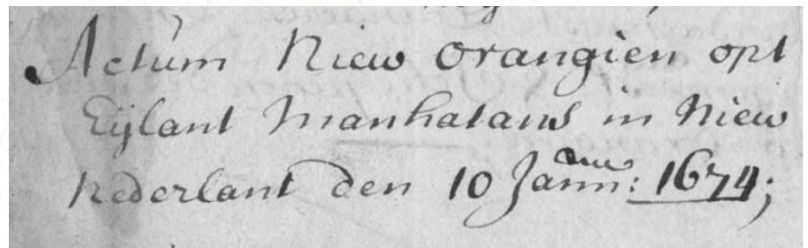 Actum Niew orangien opt
Eijlant Manhatans in Niew
nederlant den 10 Jannu: 1674;